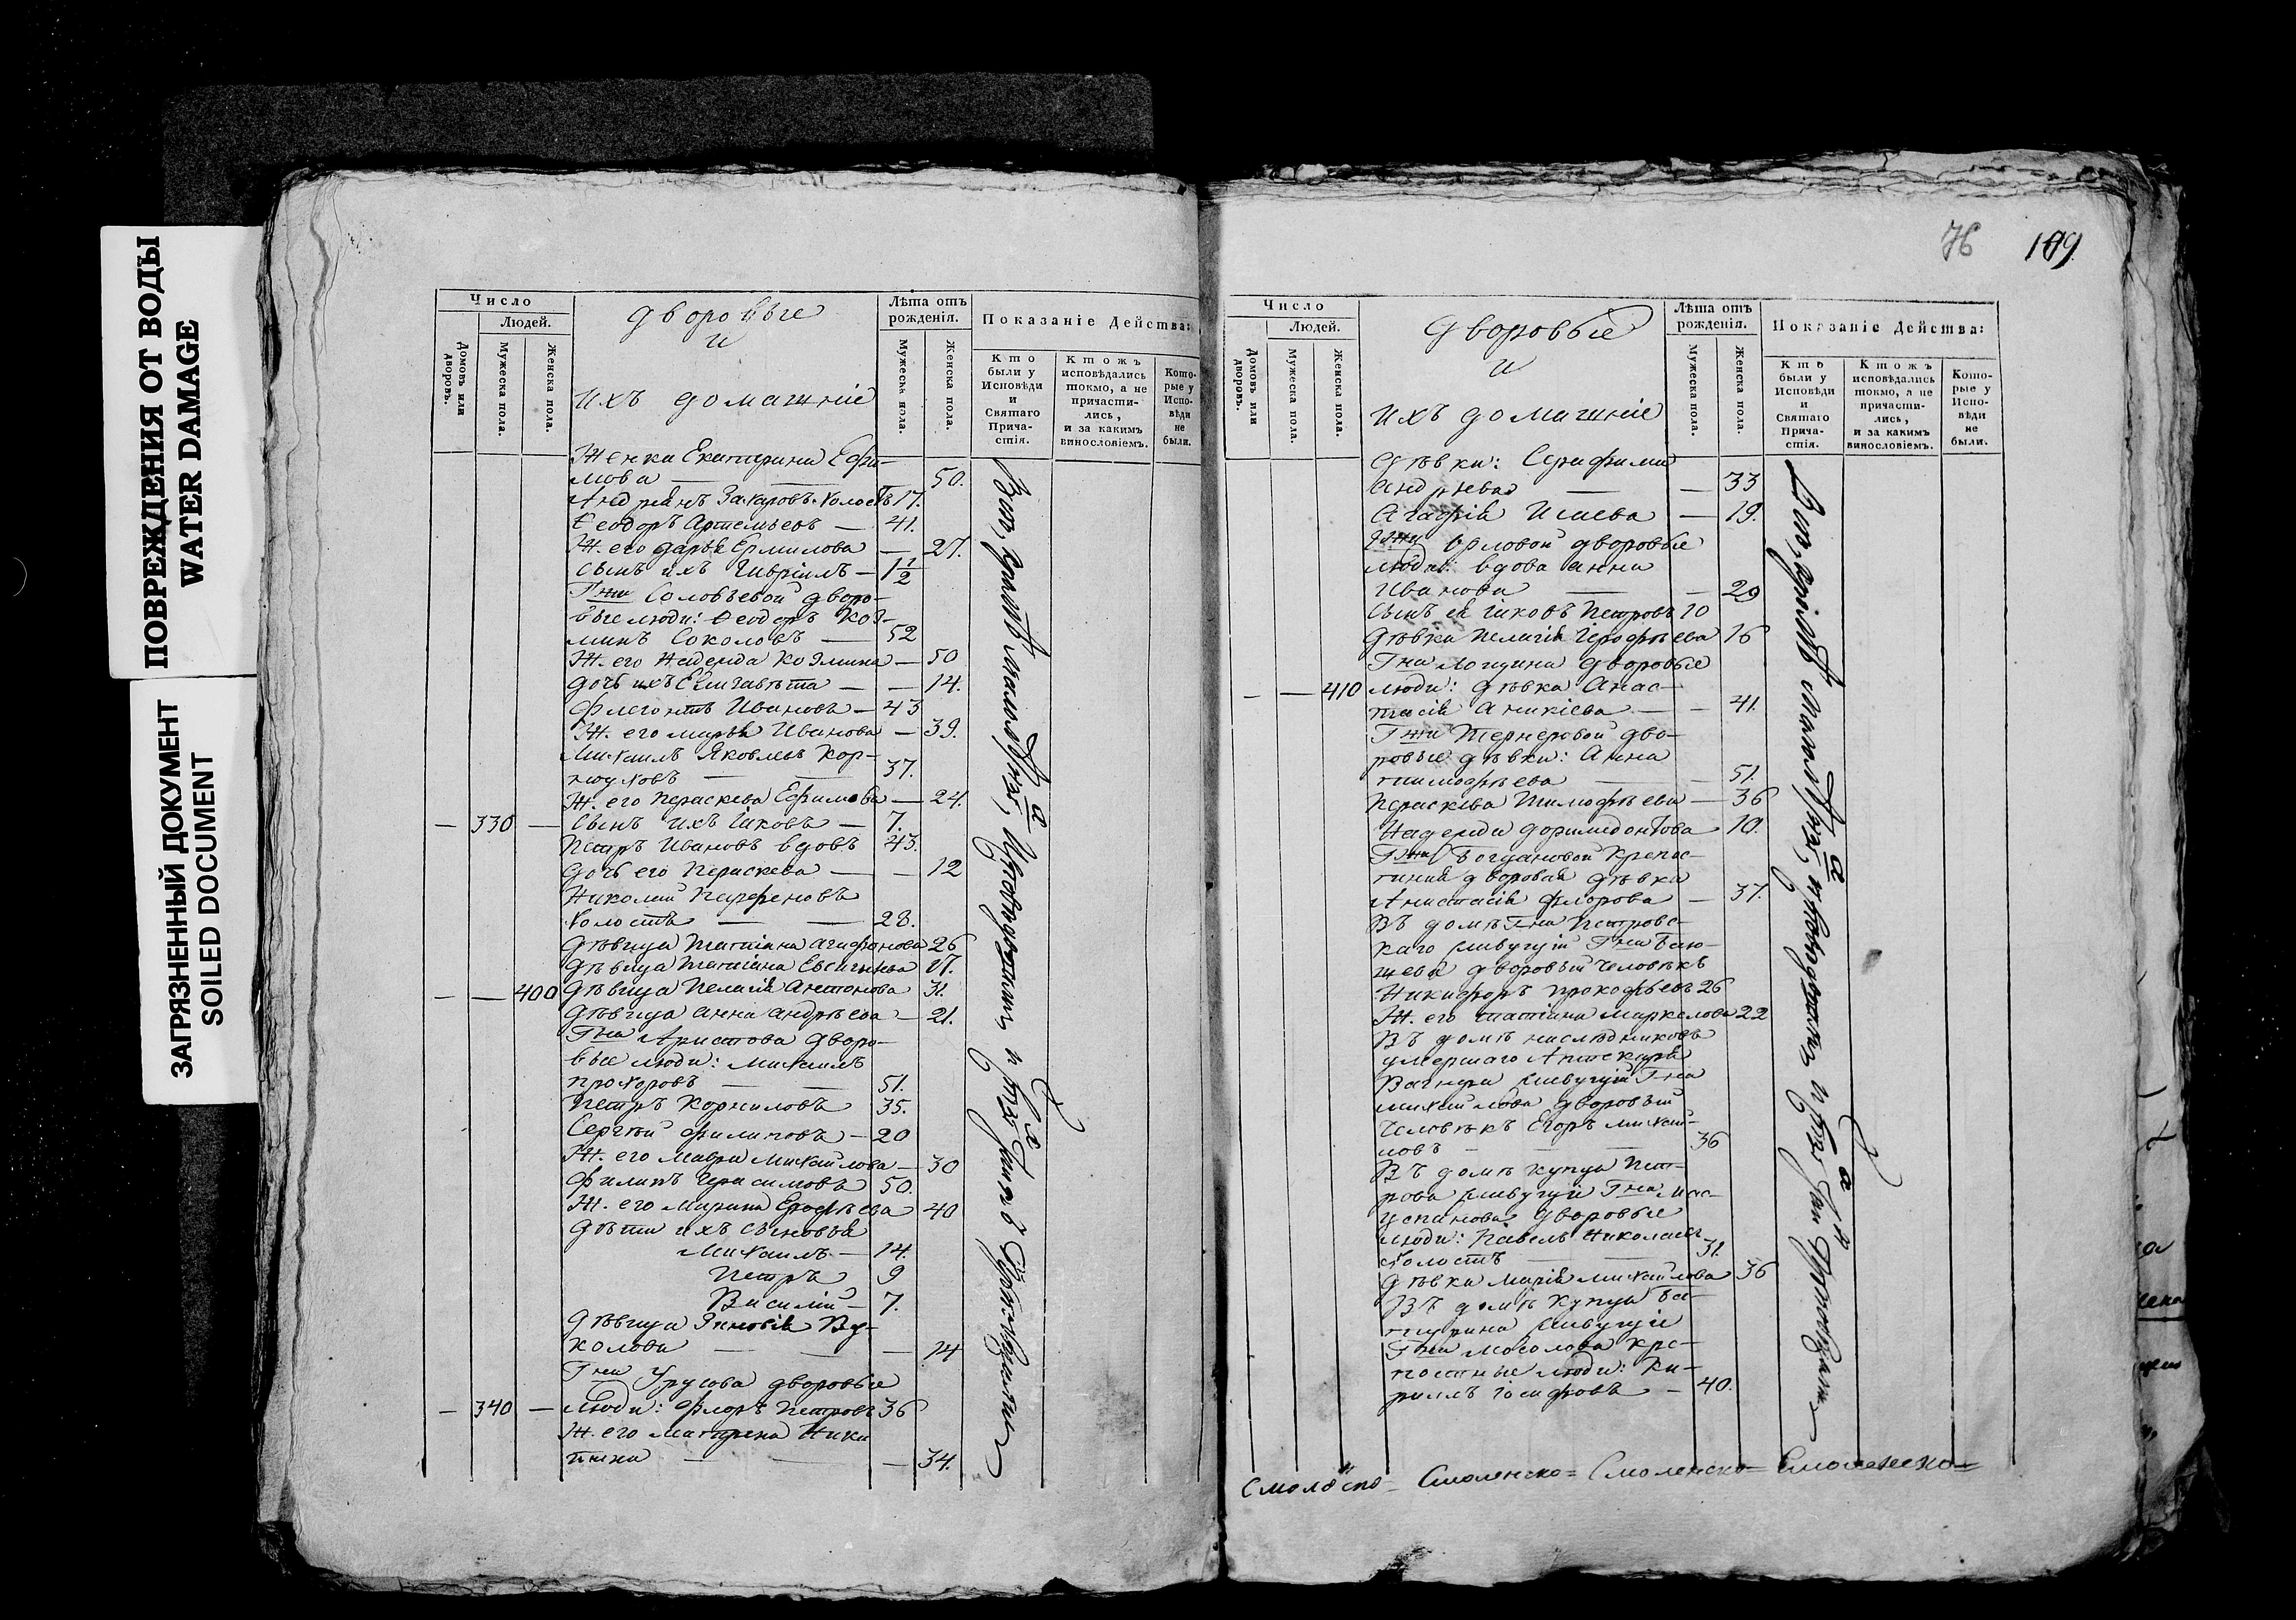 ПОВРЕЖДЕНИЯ ОТ ВОДЫ
WATER DAMAGE
ЗАГРЯЗНЕННЫЙ ДОКУМЕНТ
SOILED DOCUMENT
Число
Людей.
Домовъ или дворовъ.
Мужеска пола.
Женска пола.
дворовые
и
ихъ домашніе
Лѣта отъ рожденія.
Мужеска пола.
Женска пола.
Показаніе Действа:
Кто были у Исповѣди и Святаго Прича-стія.
Ктожъ исповѣдались токмо, а не причасти-лись, и за какимъ винословіемъ.
Кото-рые у Испо-вѣди не были.
Женка Екатерина Ефи-
мова — 50.
Андреянъ Захаровъ холостъ 17.
Ѳеодоръ Артемьевъ — 41.
Ж. его дарья Ермилова — 27.
сынъ ихъ Гавріилъ — 1 1/2
Гжи Соловьевой дворо-
вые люди: Ѳеодоръ Коз-
минъ Соколовъ — 52
Ж. его Надежда Козмина — 50
дочь ихъ Елисавѣта — — 14.
Флегонтъ Ивановъ — 43
Ж. его марья Иванова — 39.
Михаилъ Яковлевъ Кор-
ноуховъ — 37.
Ж. его Параскева Ефимова — 24.
— 330 — сынъ ихъ Іаковъ — 7.
Петръ Ивановъ вдовъ 43.
дочь его Параскева — — 12
Николай Парфеновъ
холостъ — 28.
дѣвица Татіана Агафонова 26
дѣвица Татіана Евсигнѣева 17.
— — 400 дѣвица Пелагія Антонова 31.
дѣвица Анна Андрѣева — 21.
Гна Аристова дворо-
вые люди: Михаилъ
прохоровъ — 51.
Петръ Корниловъ 35.
Сергѣй филиповъ — 20
Ж. его Мавра Михайлова — 30
Филипъ Герасимовъ 50.
Ж. его Марина Ерофѣева 40
дѣти ихъ сыновья
Михаилъ — 14.
Петръ 9
Василій — 7.
дѣвица Зиновія Ву-
колова — — 14
Гна Урусова дворовые
— 340 — люди: Флоръ Петровъ 36
Ж. его Матрена Ники
тина — — 34.
76 109.
Число
Людей.
Домовъ или дворовъ.
Мужеска пола.
Женска пола.
дворовые
и
ихъ домашніе
Лѣта отъ рожденія.
Мужеска пола.
Женска пола.
Показаніе Действа:
Кто были у Исповѣди и Святаго Прича-стія.
Ктожъ исповѣдались токмо, а не причасти-лись, и за какимъ винословіемъ.
Кото-рые у Испо-вѣди не были.
дѣвки: Серафима
Андрѣева — — 33
Агафія Исаева — 19.
Гжи Орловой дворовые
люди: вдова анна
Иванова — — 29
сынъ ея Іаковъ Петровъ 10
дѣвка Пелагія Ерофѣева 16
Гна Лощина дворовые
— — 410 люди: дѣвка Анас-
тасія Аникіева — — 41.
Гжи Тернеровой дво-
ровые дѣвки: Анна
тимофѣева — 51.
Параскева Тимофѣева — 36
Надежда доримедонтова 10.
Гжи Богдановой крепос-
тная дворовая дѣвка
Анастасія Флорова — 37.
Въ домѣ Гна Петровс-
каго дворовый человѣкъ
Никифоръ прокофьевъ 26
Ж. его татіана Маркелова 22
Въ домѣ наслѣдниковъ
умершаго Аптекаря
Вагнера Гна
михайлова дворовый
человѣкъ Егоръ михай-
ловъ — — 36
Въ домѣ купца Пет-
рова Гна
дворовые
люди: Павелъ Николаевъ
холостъ — 31.
дѣвка марія михайлова 36
Въ домѣ купца
Гна мосолова кре-
постные люди: Ки-
риллъ Іосифовъ — 40.
Смоленско= Смоленско= Смоленско=